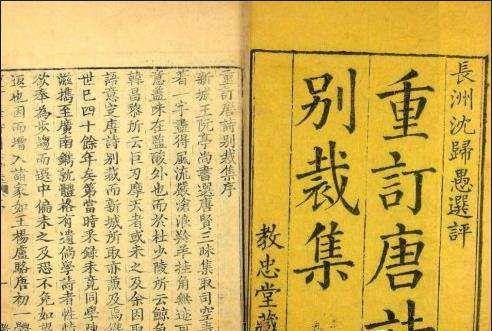 長洲沈歸愚選評
重訂唐詩
別裁集
教忠堂藏
重訂唐詩別裁集序
新城王阮亭尚書選唐賢三昧集取司空表
着一字盡得風流嚴滄浪羚羊挂角無迹可
意蓋味在鹽酸外也而於杜少陵所云鯨魚
韓昌黎所云巨刃摩天者或未之及余因取
語意定唐詩別裁而新城所取亦兼及焉
世已四十餘年矣第當時采錄未竟同學陳
滋攜至廣南鐫就體格有遺倘學詩者性情
欲奉為 而選中偏未之及恐不免如望
返也因而增入諸家如王楊盧駱唐初一體